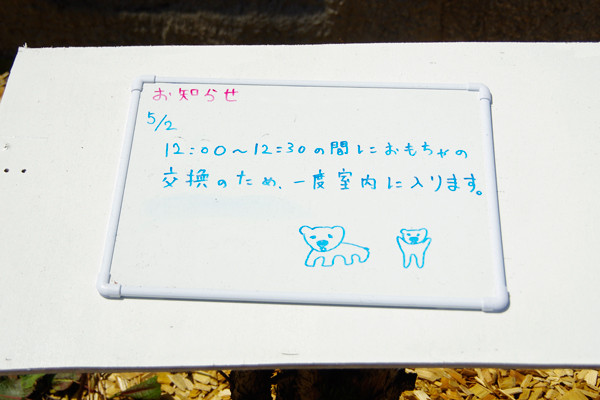 お知らせ
5/2
12:00～12:30の間におもちゃの
交換のため、一度室内に入ります。